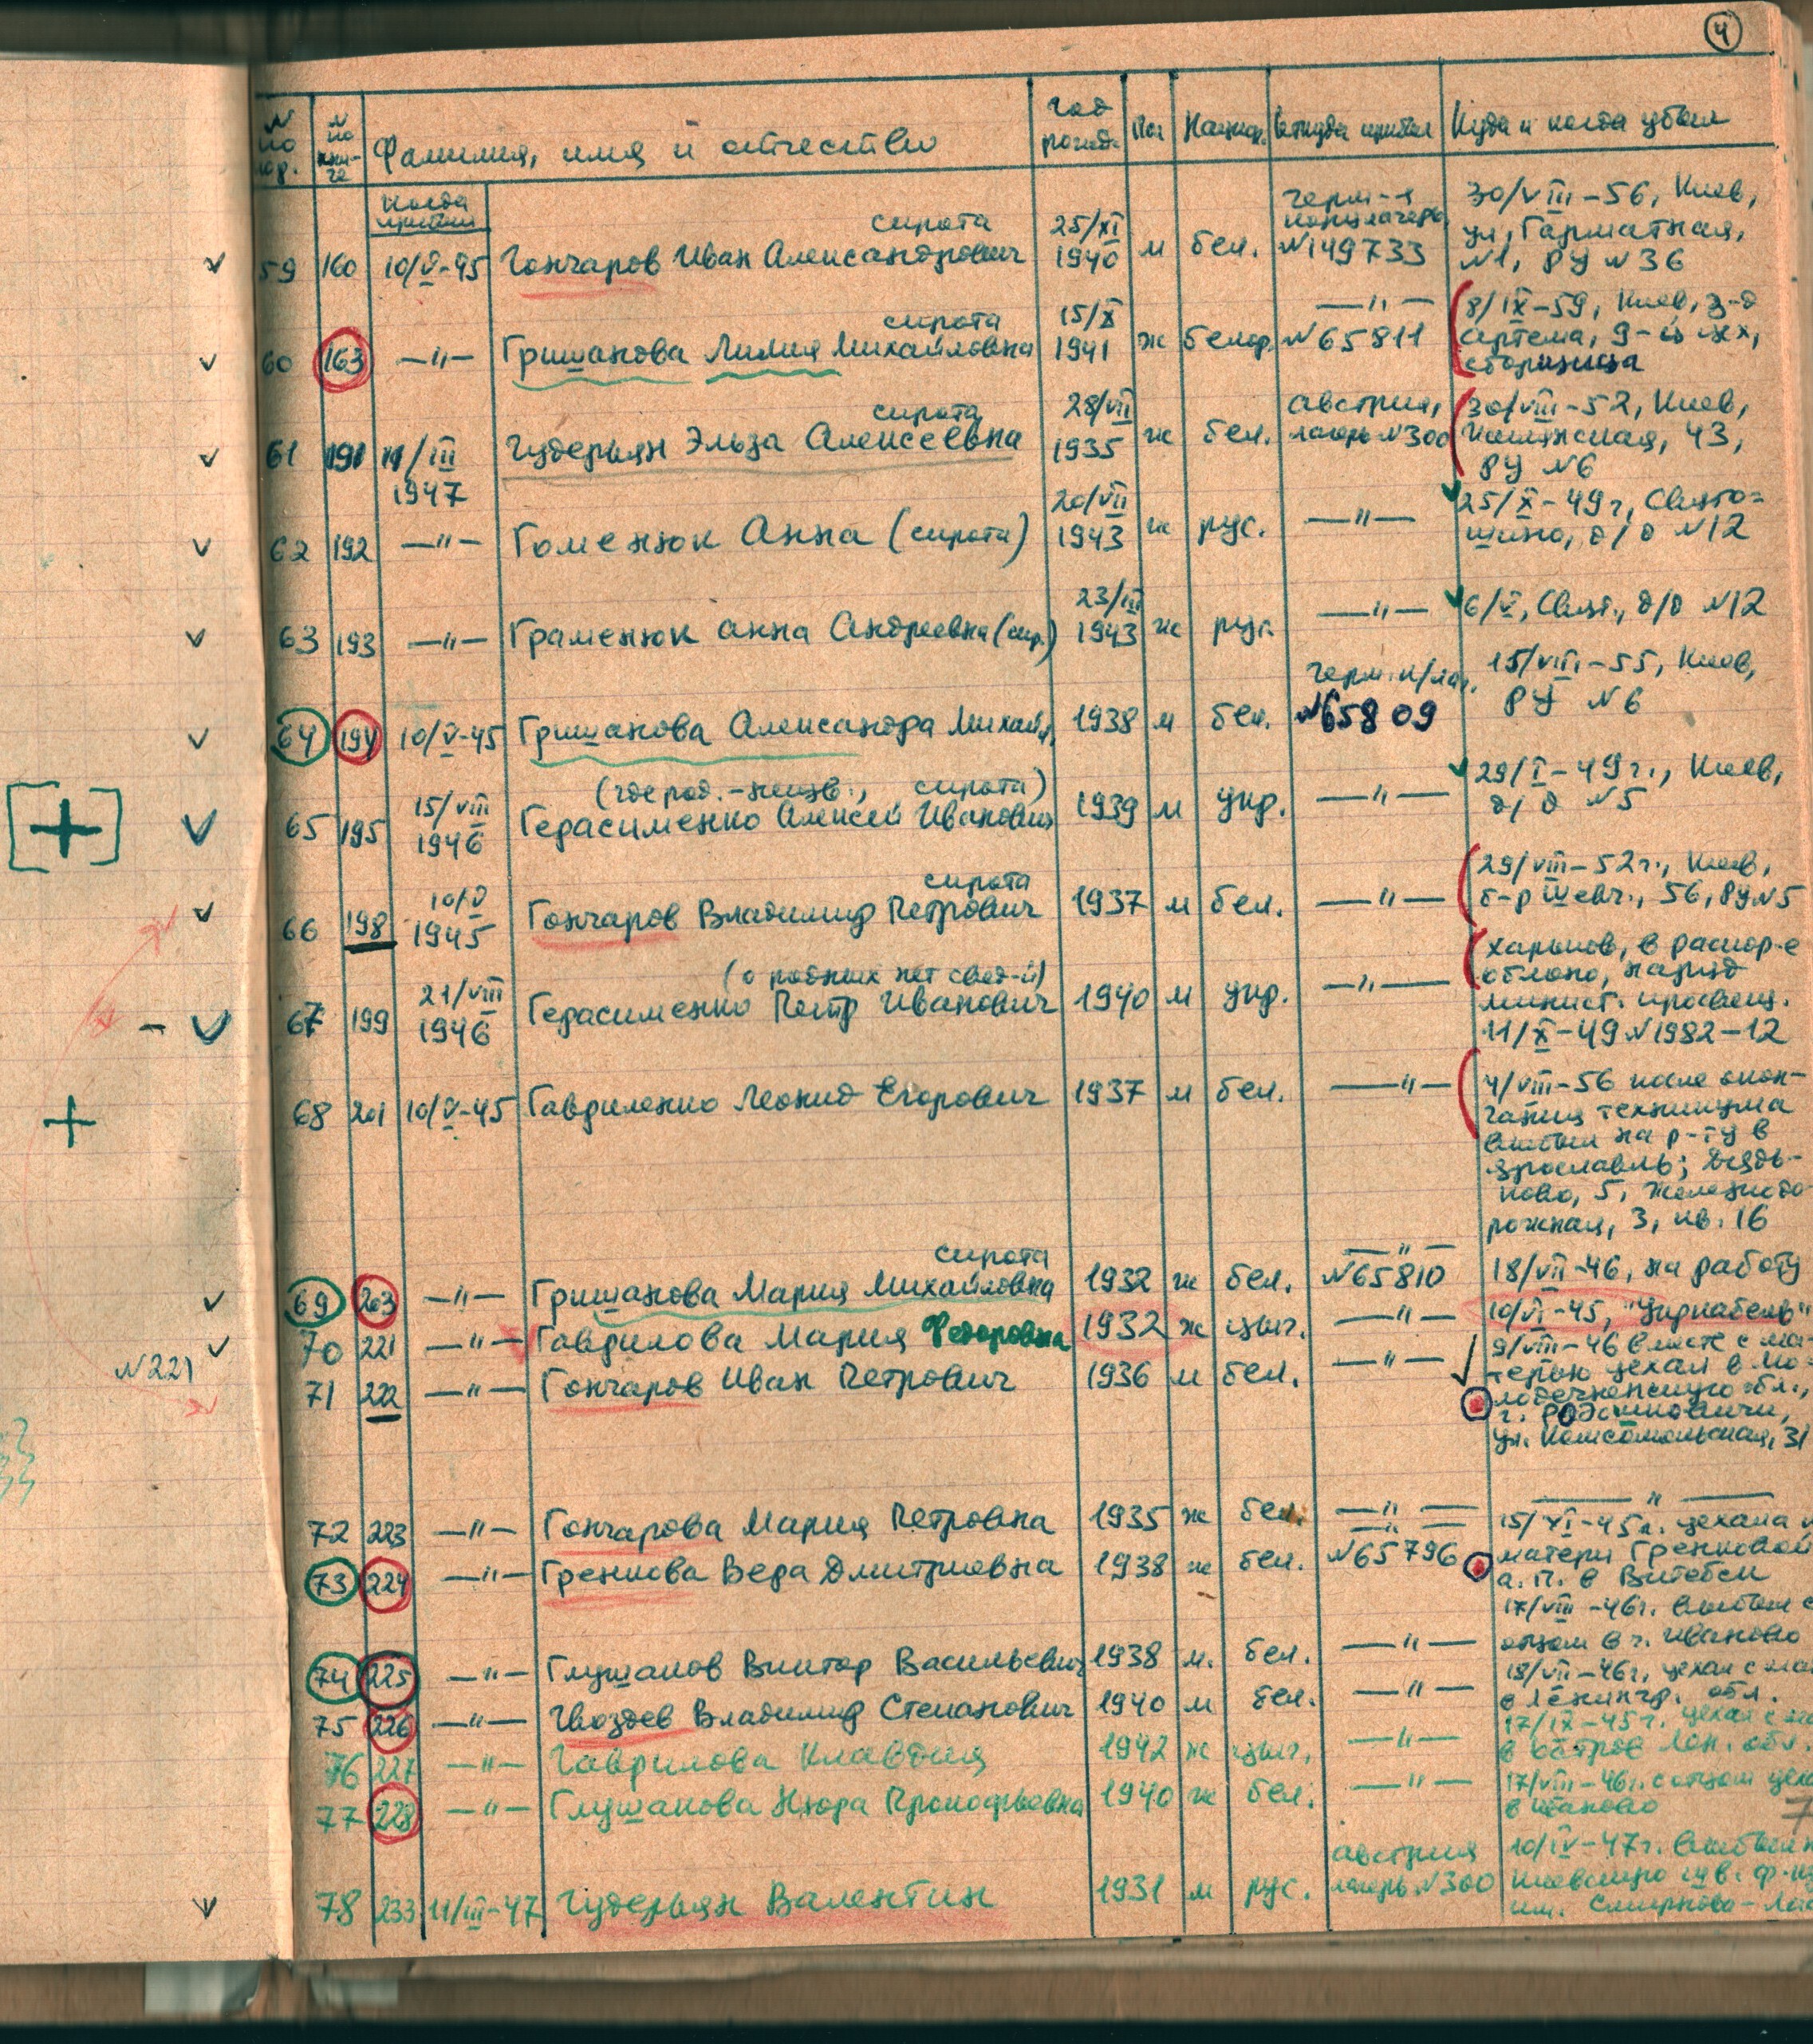 4
N по пор. N по кни-ге Фамилия, имя и отчество год рожд. Пол Национ. Откуда прибыл Куда и когда убыл
когда прибыл
59 160 10/V-45 Гончаров Иван Александрович сирота 25/XI 1940 м бел. герм-я концлагерь N149733 30/VIII-56, Киев,
ул. Гарматная,
N1, РУ N36
60 163 —"— Гришанова Лилия Михайловна сирота 15/X 1941 ж белор. —"— N65811 8/IX-59, Киев, з-д
Артема, 9-й цех,
сборщица
61 191 11/III 1947 Гудерьян Эльза Алексеевна сирота 28/VII 1935 ж бел. Австрия, лагерь N300 30/VIII-52, Киев,
43,
РУ N6
62 192 —"— Гоменюк Анна (сирота) 20/VII 1943 ж рус. —"— 25/X-49г, Свято-
шино, д/д N12
63 193 —"— Граменюк Анна Андреевна (сир.) 23/III 1943 ж рус. —"— 6/V, Свят., д/д N12
64 194 10/V-45 Гришанова Александра Михайл. 1938 м бел. герм. к/лаг. N65809 15/VIII-55, Киев,
РУ N6
65 195 15/VIII 1946 (где род.-неизв., сирота) Герасименко Алексей Иванович 1939 м укр. —"— 29/I-49г., Киев,
д/д N5
66 198 10/V 1945 Гончаров Владимир Петрович сирота 1937 м бел. —"— 29/VIII-52г., Киев,
б-р Шевч., 56, РУ N5
67 199 21/VIII 1946 (о родных нет свед-й) Герасименко Петр Иванович 1940 м укр. —"— Харьков, в распор-е
облоно, наряд
минист. просвещ.
11/X-49 N1982-12
68 201 10/V-45 Гавриленко Леонид Егорович 1937 м бел. —"— 4/VIII-56 после окон-
чания техникума
выбыл на р-ту в
Ярославль;
5, Железнодо
рожная, 3, кв. 16
69 203 —"— Гришанова Мария Михайловна сирота 1932 ж бел. —"— N65810 18/VII-46, на работу
70 221 —"— Гаврилова Мария Федоровна 1932 ж цыг. —"— 10/VI-45, "Укркабель"
N221
71 222 —"— Гончаров Иван Петрович 1936 м бел. —"— 9/VIII-46 вместе с ма-
терью уехал в Мо-
лодечненскую обл.,
г. Радошковичи,
ул. Комсомольская, 31
72 223 —"— Гончарова Мария Петровна 1935 ж бел. —"— —"—
73 224 —"— Гренкова Вера Дмитриевна 1938 ж бел. —"— N65796 15/XI-45г. уехала к
матери Гренковой
А. П. в Витебск
74 225 —"— Глушаков Виктор Васильевич 1938 м. бел. —"— 17/VIII-46г. выбыл с
отцом в г. Иваново
75 226 —"— Гвоздев Владимир Степанович 1940 м бел. —"— 18/VII-46г, уехал с ма
в Ленингр. обл.
76 227 —"— Гаврилова Клавдия 1942 ж цыг. —"— 17/IX-45г. уехал с ма
в Остров Лен. обл.
77 228 —"— Глушакова Нюра Прокофьевна 1940 ж бел. —"— 17/VIII-46г. с отцом уеха
в Иваново
78 233 11/III-47 Гудерьян Валентин 1931 м рус. Австрия лагерь N300 10/IV-47г. выбыл н
киевскую шв. ф-ку
им. Смирнова-Лас